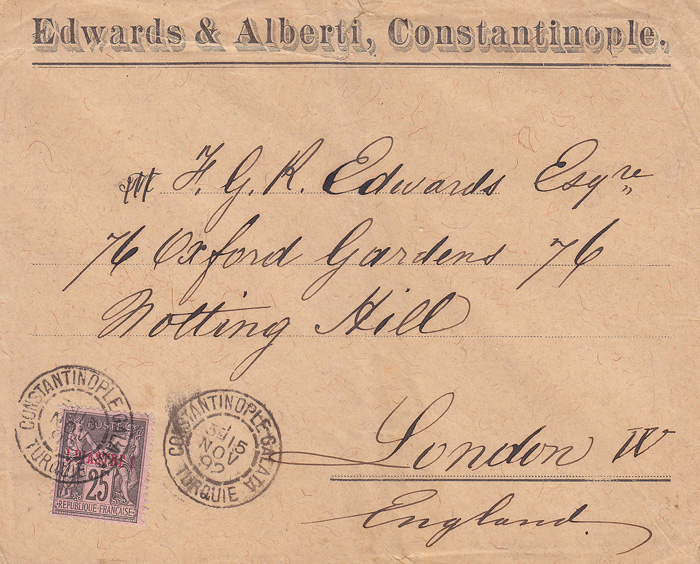 Edwards & Alberti, Constantinople.
F. G. K. Edwards Esqre,,
76 Oxford Gardens 76
Notting Hill
London W
England.
CONSTANTINOPLE-GALATA
15
NOV
92
TURQUIE
CONSTANTINOPLE-GALATA
TURQUIE
POSTES
1 PIASTRE 1
25
REPUBLIQUE FRANÇAISE